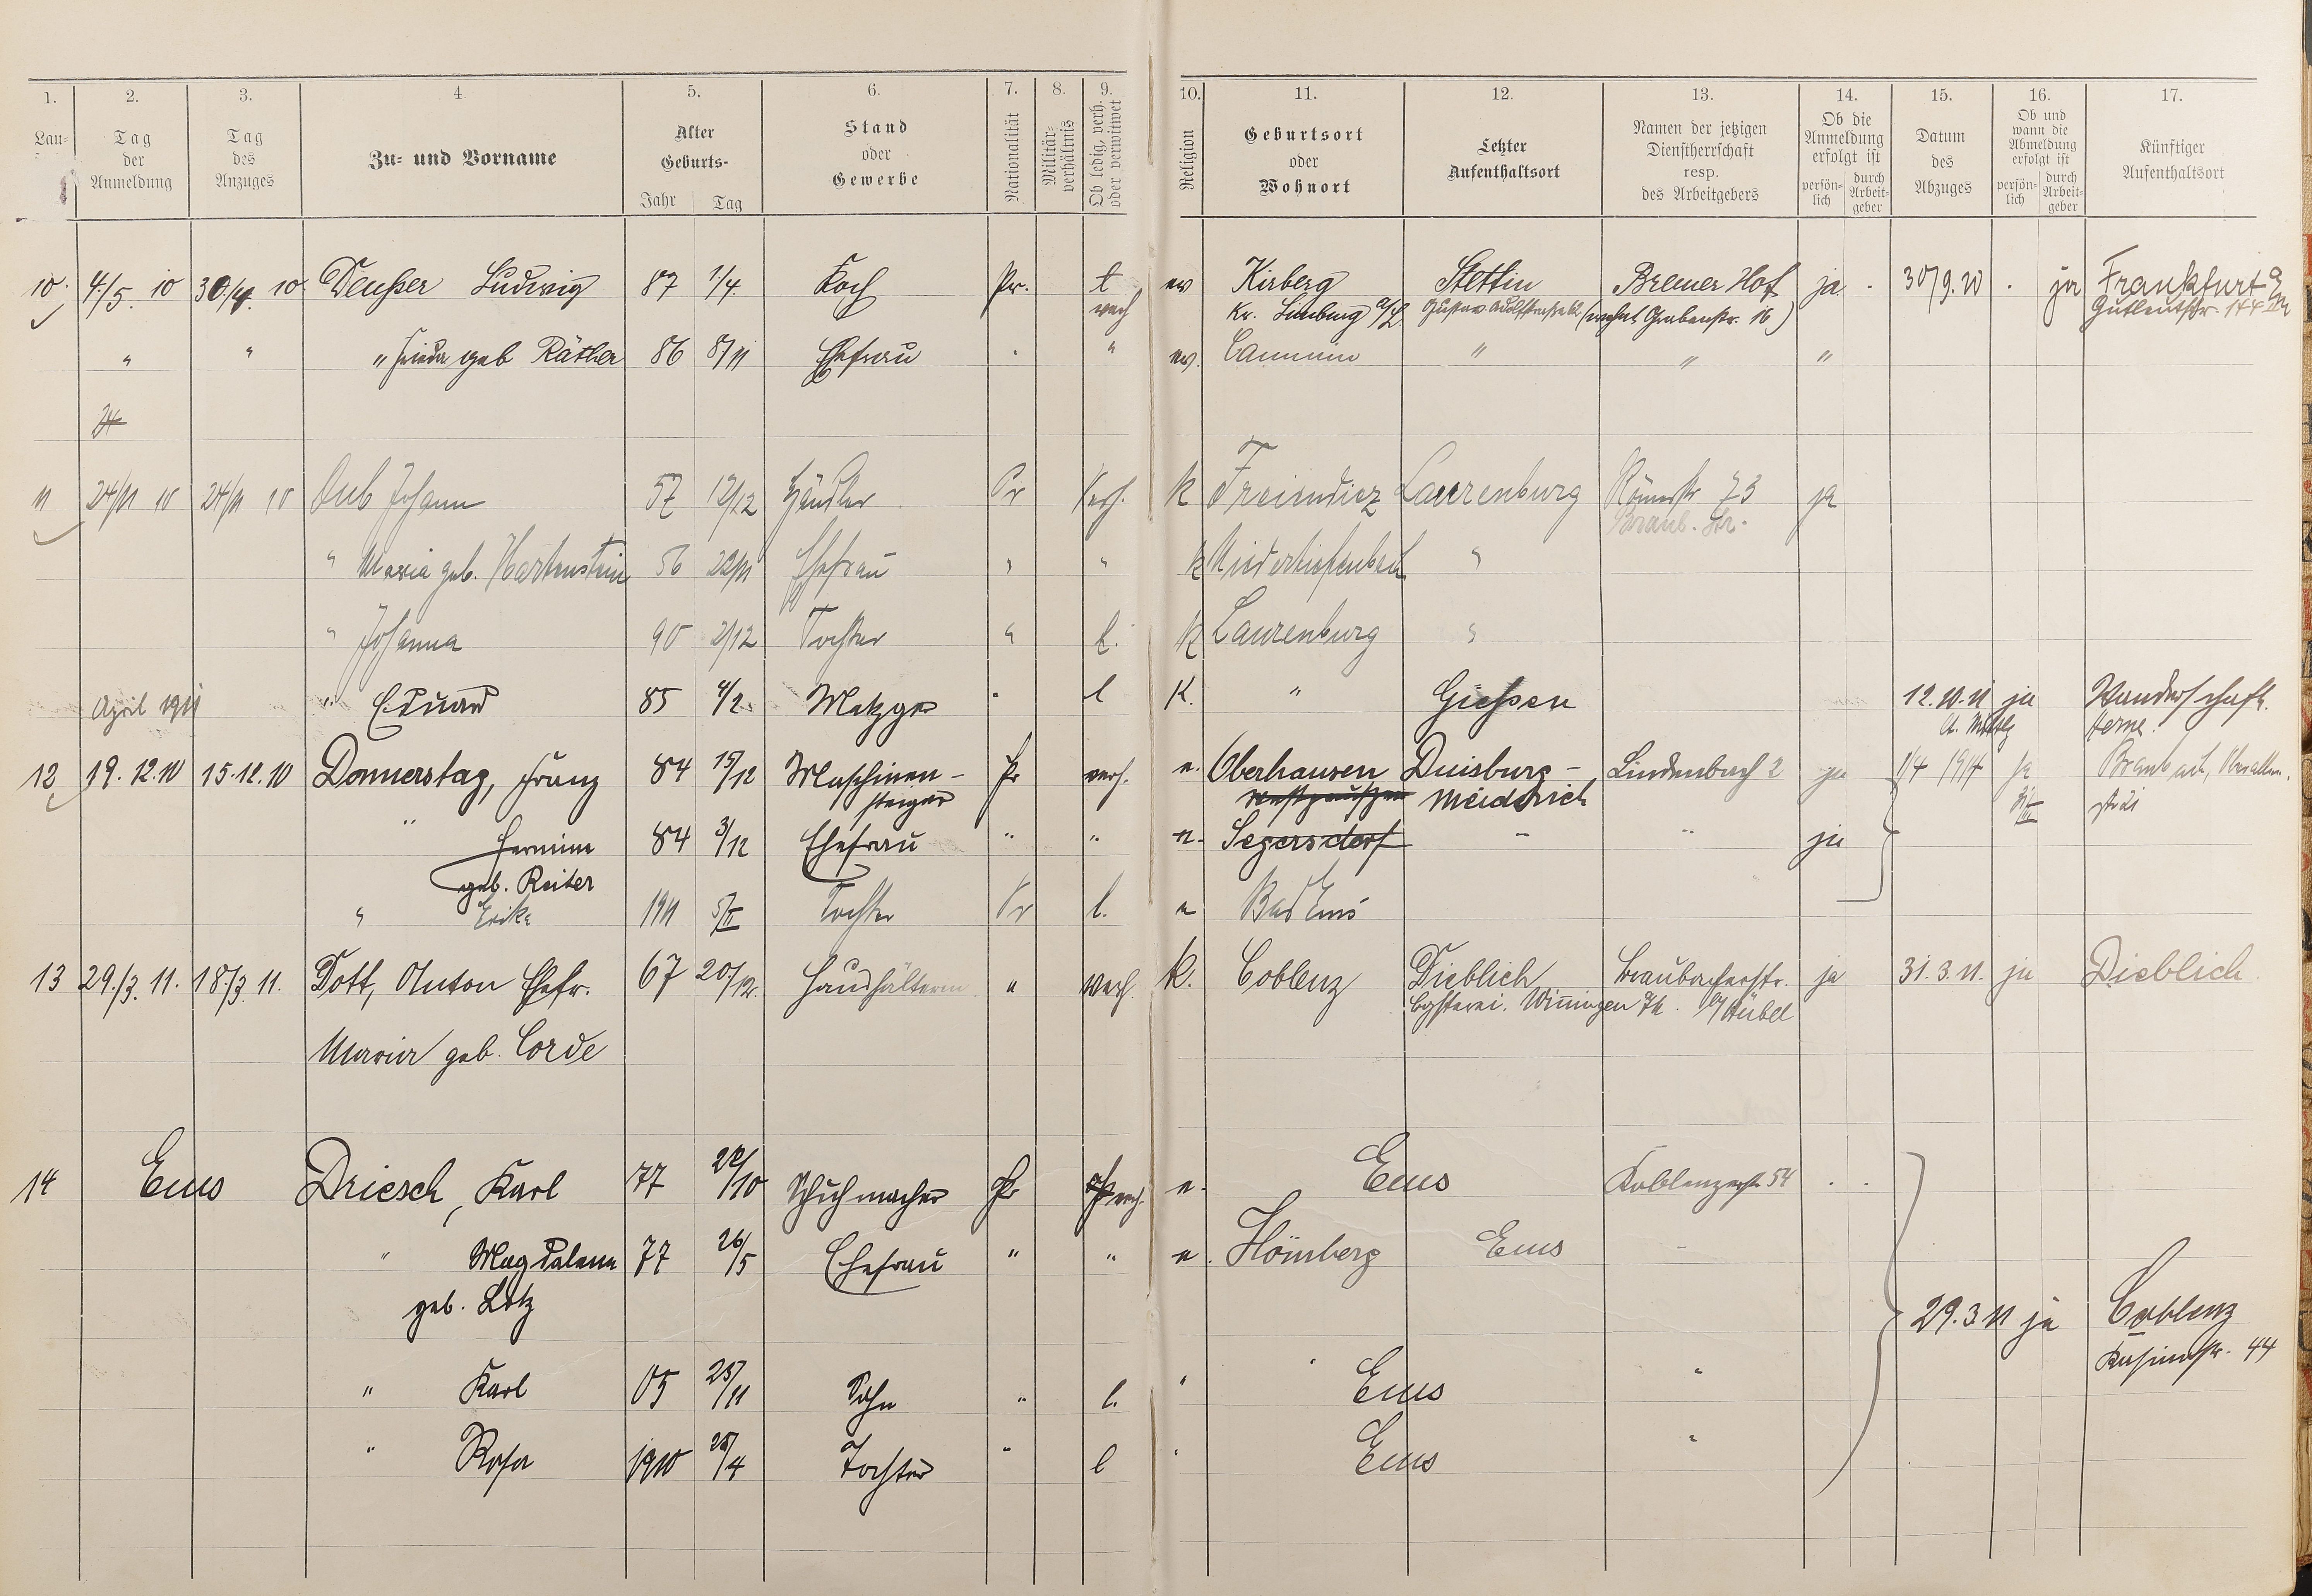 1. 2. 3. 4. 5. 6. 7. 8. 9. 10. 11. 12. 13. 14. 15. 16. 17.
Lau-
Tag der Anmeldung
Tag des Anzuges
Zu- und Vorname
Alter Geburts- Jahr Tag
Stand oder Gewerbe
Nationalität
Militär-verhältnis
Ob ledig, verh. oder verwitwet
Religion
Geburtsort oder Wohnort
Letzter Aufenthaltsort
Namen der jetzigen Dienstherrschaft resp. des Arbeitgebers
Ob die Anmeldung erfolgt ist persön-lich durch Arbeit-geber
Datum des Abzuges
Ob und wann die Abmeldung erfolgt ist persön-lich durch Arbeit-geber
Künftiger Aufenthaltsort
10. 4./5. 10 30./4. 10. Deußer Ludwig 87 1./4. Koch Pr. ev Kirberg Stettin Bremer Hof ja. 30/9. 10 ja Frankfurt a/M
verh Kr. Limburg a/L (wohnt Grabenstr. 16) Gutleutstr. 144 III
" " " Frieda geb Räther 86 8/11 Ehefrau " ev. Cammin " " "
24
11 24/11 10 24/11 10 Johann 57 12/12 Händler Pr Verh. k Freiendiez Laurenburg Römerstr 73 ja
Braub. Str.
" Maria geb. Hartenstein 56 22/11 Ehefrau " " k Niedertiefenbach "
" Johanna 90 2/12 Tochter " l. k Laurenburg "
April 1911 " Eduard 85 4/2. Metzger " l K. " Giessen 12.10.11 ja Wanderschaft.
Herne.
12 19.12.10 15.12.10 Donnerstag, Franz 84 15/12 Maschinen- Pr verh. e. Oberhausen Duisburg- Lindenbach 2 ja 1/4 1914 ja
steiger Meiderich
" Hermine 84 3/12 Ehefrau " " e. Segersdorf - " ja
geb. Reiter
" Erika 1911 5/II Tochter Pr l. e Bad Ems
13 29./3. 11. 18./3. 11. Dott, Anton Ehefr. 67 20./12. Haushälterin " verh. k. Coblenz Dieblich Braubacherstr. ja 31.3.11. ja Dieblich
Winningen b/ Stübel
Maria geb. Corde
14 Ems Driesch, Karl 77 22/10 Schuhmacher Pr verh. e. Ems Koblenzerstr. 54 . .
" Magdalena 77 26/5 Ehefrau " " e. Hömberg Ems -
geb. Lotz
29.3.11 ja Coblenz
44
" Karl 05 25/11 Sohn " l. " Ems "
" Rosa 1910 25/4 Tochter " l " Ems "